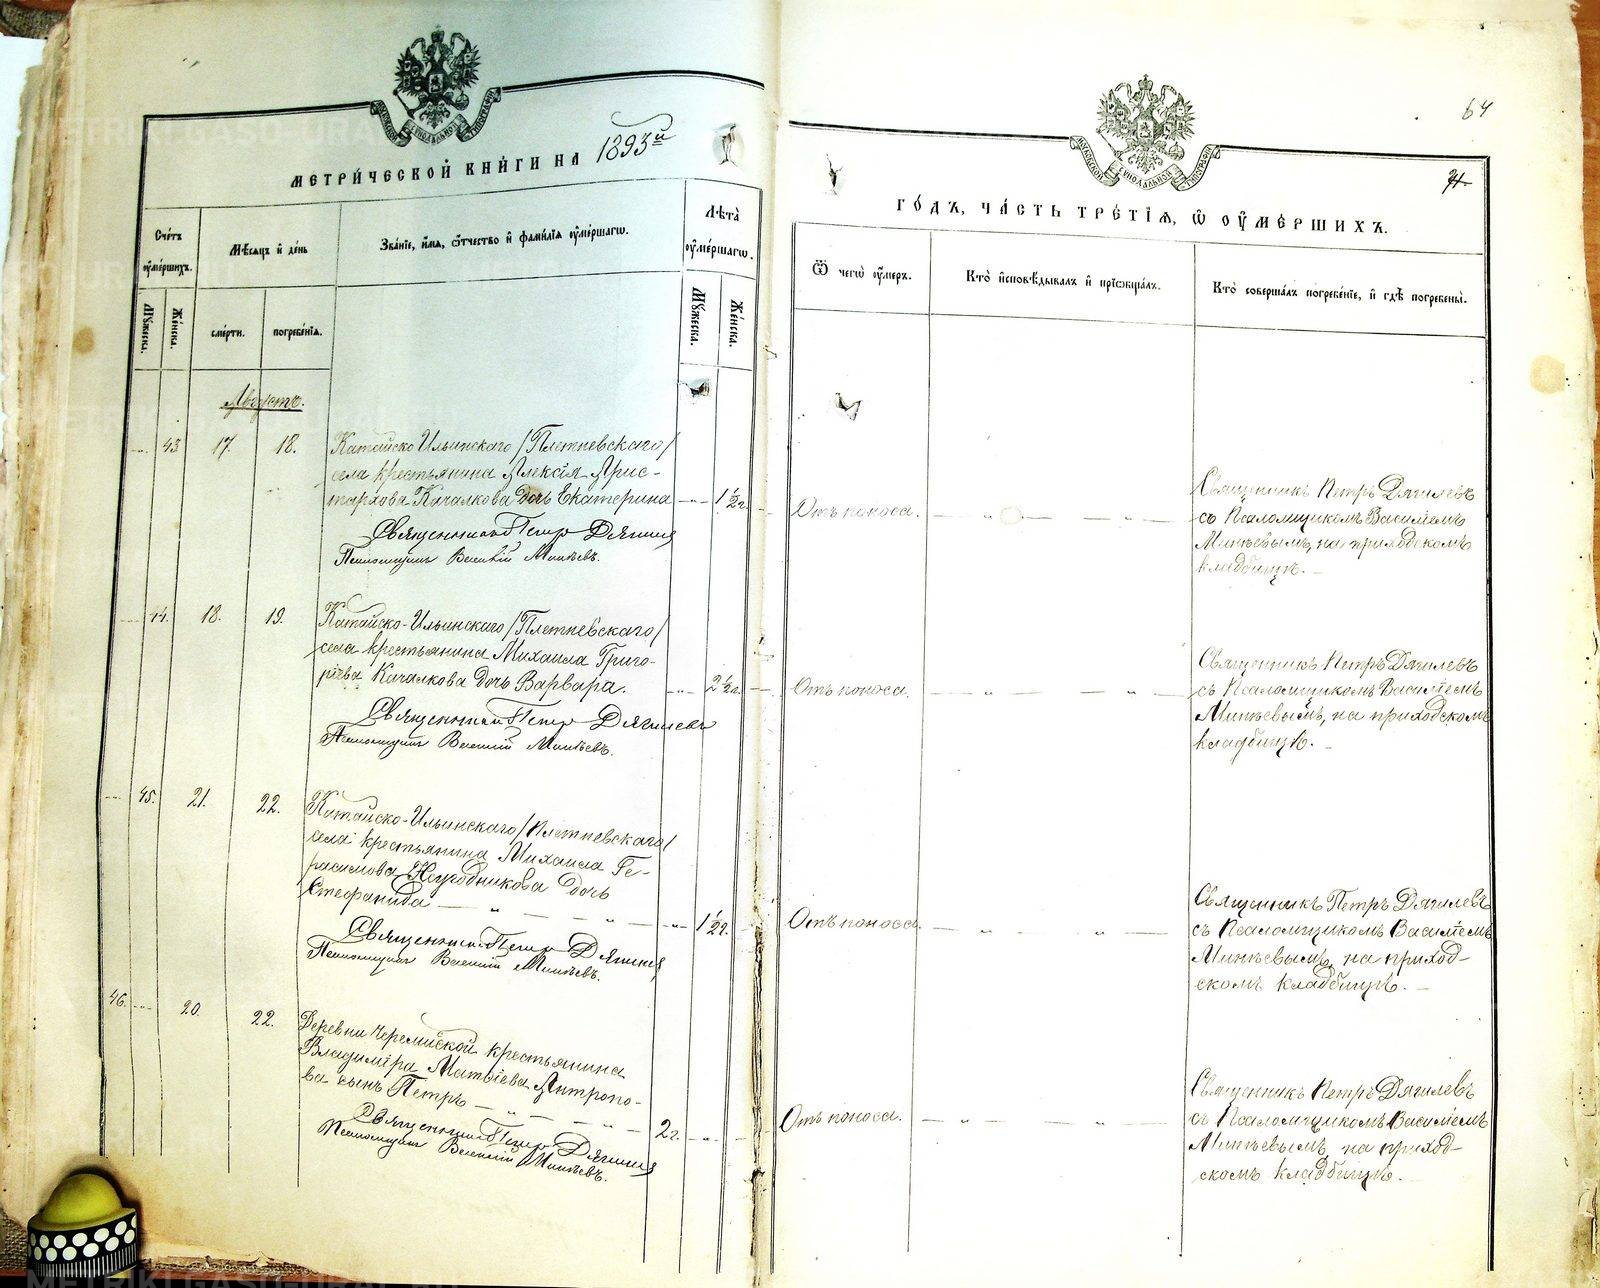 МЕТРИ́ЧЕСКОЙ КНИ́ГИ НА 1893й
Сче́тъ ᲂу҆ме́ршихъ.
Мѣ́сяцъ и҆ де́нь
Зва́нїе, и҆́мя, ѻ҆́тчество и҆ фами́лїя ᲂу҆ме́ршагѡ.
Лѣ́та ᲂу҆ме́ршагѡ.
Мꙋ́жеска.
Же́нска.
сме́рти.
погребе́нїя.
Мꙋ́жеска.
Же́нска.
Августъ.
43 17. 18. Катайско Ильинскаго /Плетневскаго/
села крестьянина Алексія Арис-
тархова Качалкова дочь Екатерина 1½г.
Священникъ Петръ Дягилевъ
Псаломщикъ Василій Минѣевъ.
44. 18. 19. Катайско-Ильинскаго /Плетневскаго/
села крестьянина Михаила Григо-
ріева Качалкова дочь Варвара. 2½г.
Священникъ Петръ Дягилевъ
Псаломщикъ Василій Минѣевъ.
45. 21. 22. Катайско-Ильинскаго /Плетневскаго/
села крестьянина Михаила Ге-
расимова дочь
Стефанида 1½г.
Священникъ Петръ Дягилевъ
Псаломщикъ Василій Минѣевъ.
46. 20. 22. Деревни Черемисской крестьянина
Владиміра Матѳіева Антропо-
ва сынъ Петръ 2г.
Священникъ Петръ Дягилевъ
Псаломщикъ Василій Минѣевъ.
64
71.
МОСКОВСКОЙ СУНОДАЛЬНОЙ ТИПОГРАФІИ
ГО́ДЪ, ЧА́СТЬ ТРЕ́ТЇѦ, Ѡ҆ ОУ҆МЕ́РШИХЪ.
Ѿ чегѡ̀ ᲂу҆́меръ.
Кто̀ и҆сповѣ́дывалъ и҆ прїѡбща́лъ.
Кто̀ соверша́лъ погребе́нїе, и҆ гдѣ̀ погребены̀.
Отъ поноса.
Священникъ Петръ Дягилевъ
съ Псаломщикомъ Василіемъ
Минѣевымъ, на приходскомъ
кладбищѣ.
Отъ поноса.
Священникъ Петръ Дягилевъ
съ Псаломщикомъ Василіемъ
Минѣевымъ, на приходскомъ
кладбищѣ.
Отъ поноса.
Священникъ Петръ Дягилевъ
съ Псаломщикомъ Василіемъ
Минѣевымъ, на приход-
скомъ кладбищѣ.
Отъ поноса.
Священникъ Петръ Дягилевъ
съ Псаломщикомъ Василіемъ
Минѣевымъ, на приход-
скомъ кладбищѣ.